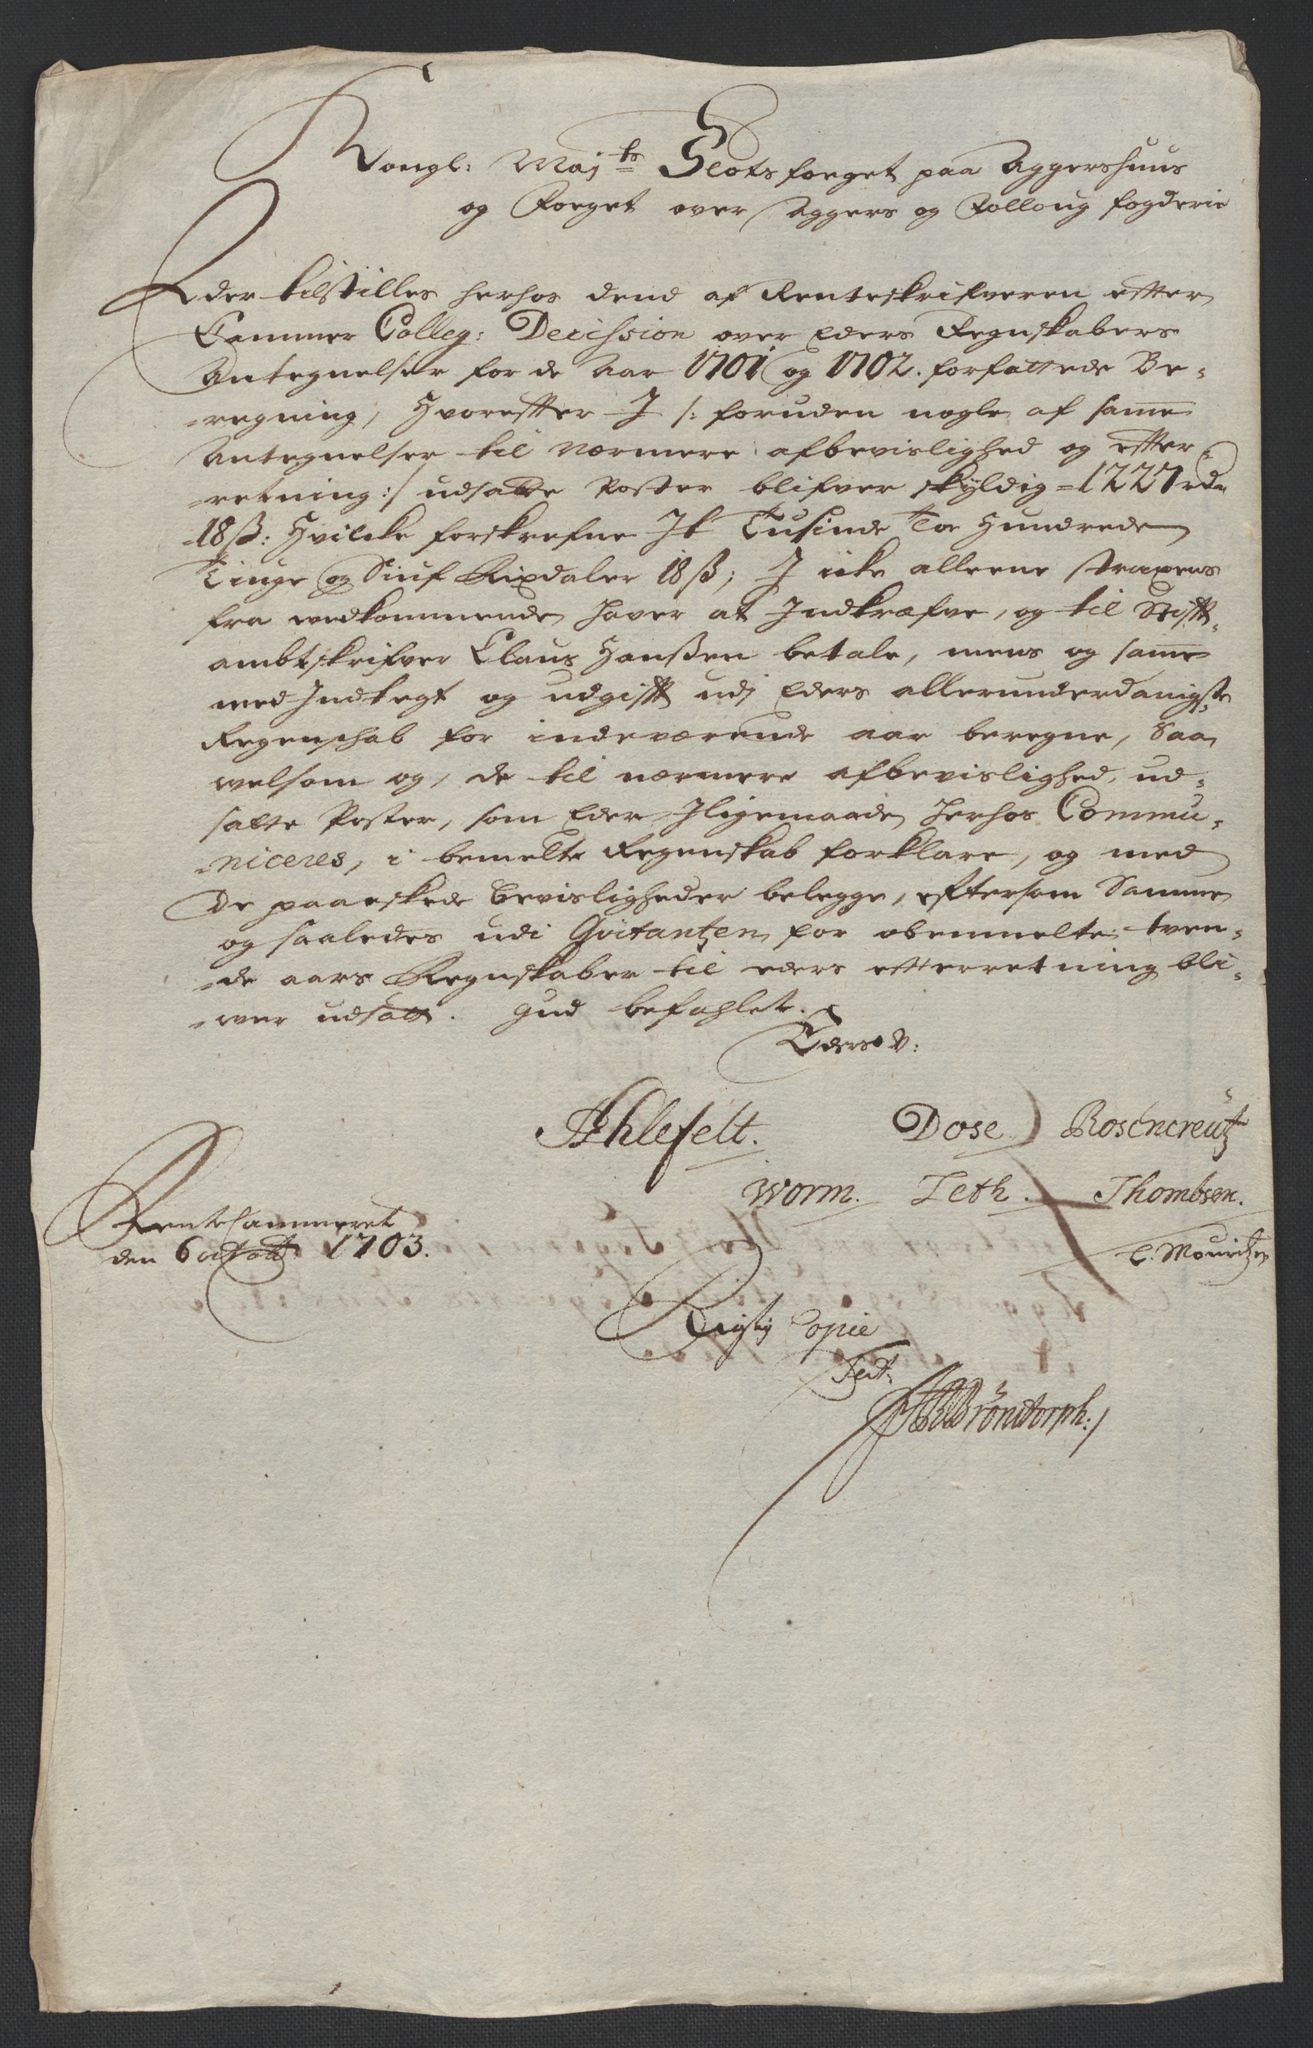 Kongl: Maj:ts Slotsfoeget paa Aggershuus
og Foeget over Aggers og Folloug fogderie
Eder tilstilles herhos dend af Renteskrifveren effter
Cammer Colleg: Decission over Eders Regnskabers
Antegnelser for de Aar 1701 og 1702. forfattede Be-
regning, Hvoreffter I /: foruden nogle af samme
Antegnelser til nærmere afbevislighed og effter-
retning :/ udsatte Poster blifver skyldig = 1227 rdr
18 ß: Hvilcke forskrefne Et Tusinde Toe Hundrede
Tiuge og Siuf Rixdaler 18 ß, I icke alleene straxens
fra wedkommende hafver at Indkræfve, og til Stifft-
ambtskrifver Claus Hanßen betale, mens og samme
med Indtegt og udgifft udj Eders allerunderdanigste
Regenschab for indeværende aar beregne, Saa
welsom og, de til nærmere afbevislighed, ud-
satte Poster, som Eder Iligemaade herhos Commu-
niceres, i bemelte Regenskab forklare, og med
De paaeskede bevisligheder belegge, eftersom Samme
og saaledes udi Qvitantzen for obenmelte tven-
de aars Regnskaber til eders effterretning bli-
wer udsatt. Gud befahlet.
Eders V:
Ahlefelt. Dose Rosencreütz
Worm. Leth. Thombsen.
C: Mouridtzen
Rente Cammeret
den 6 octobr: 1703.
Rigtig Copie
Test:
Bröndorph:/